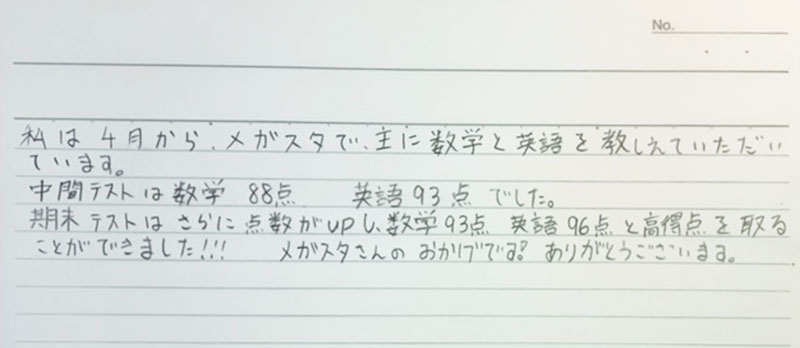 No.
私は4月から、メガスタで、主に数学と英語を教しえていただい
ています。
中間テストは数学 88点 英語93点 でした。
期末テストはさらに点数がupし、数学93点 英語96点と高得点を取る
ことができました!!! メガスタさんのおかげです!! ありがとうございます。